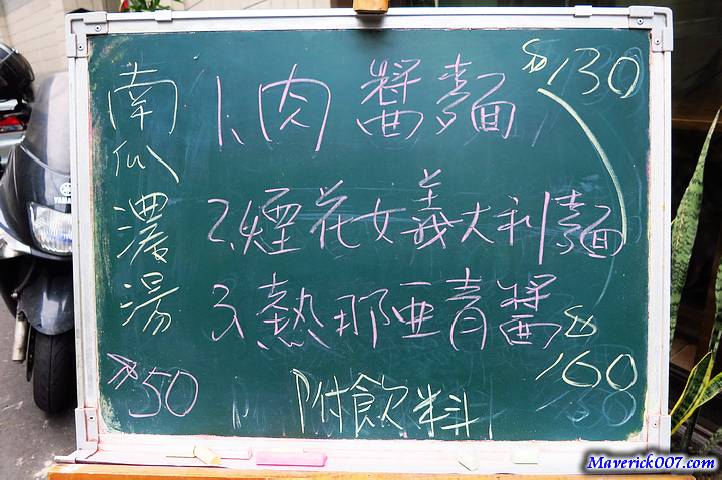 南瓜濃湯
$50
1.肉醬麵 $130
2.煙花女義大利麵
3.熱那亞青醬 $160
附飲料
YAMAHA
Maverick007.com